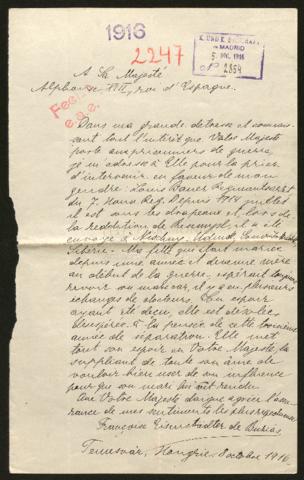 1916
2247
K. UND K. BOTSCHAFT
in MADRID
1916
A Sa Majesté
Alphonse XIII, roi d'Espagne.
Dans ma grande détresse et connais-
sant tout l'intérêt que Votre Majesté
porte aux prisonniers de guerre,
je m'adresse à Elle pour la prier
d'intervenir en faveur de mon
gendre: Louis Bauer Regimentsarzt
du 7. Honv. Reg. Depuis 1914 juillet
il est sous les drapeaux et, lors de
la reddition de Przemysl, il a été
envoyé à
Sibérie. Ma fille qui était mariée
depuis une année et devenue mère
au début de la guerre, espérait toujours
revoir son mari car, il y a eu plusieurs
échanges de docteurs. Cet espoir
ayant été déçu, elle est désolée
à la pensée de cette troisième
année de séparation. Elle met
tout son espoir en Votre Majesté, la
suppliant de toute son âme de
vouloir bien user de son influence
pour que son mari lui soit rendu.
Que Votre Majesté daigne agréer l'assu-
rance de mes sentiments les plus profonds
Françoise Eisenstädter de Buziás
Temesvár, Hongrie. 8 octobre 1916.